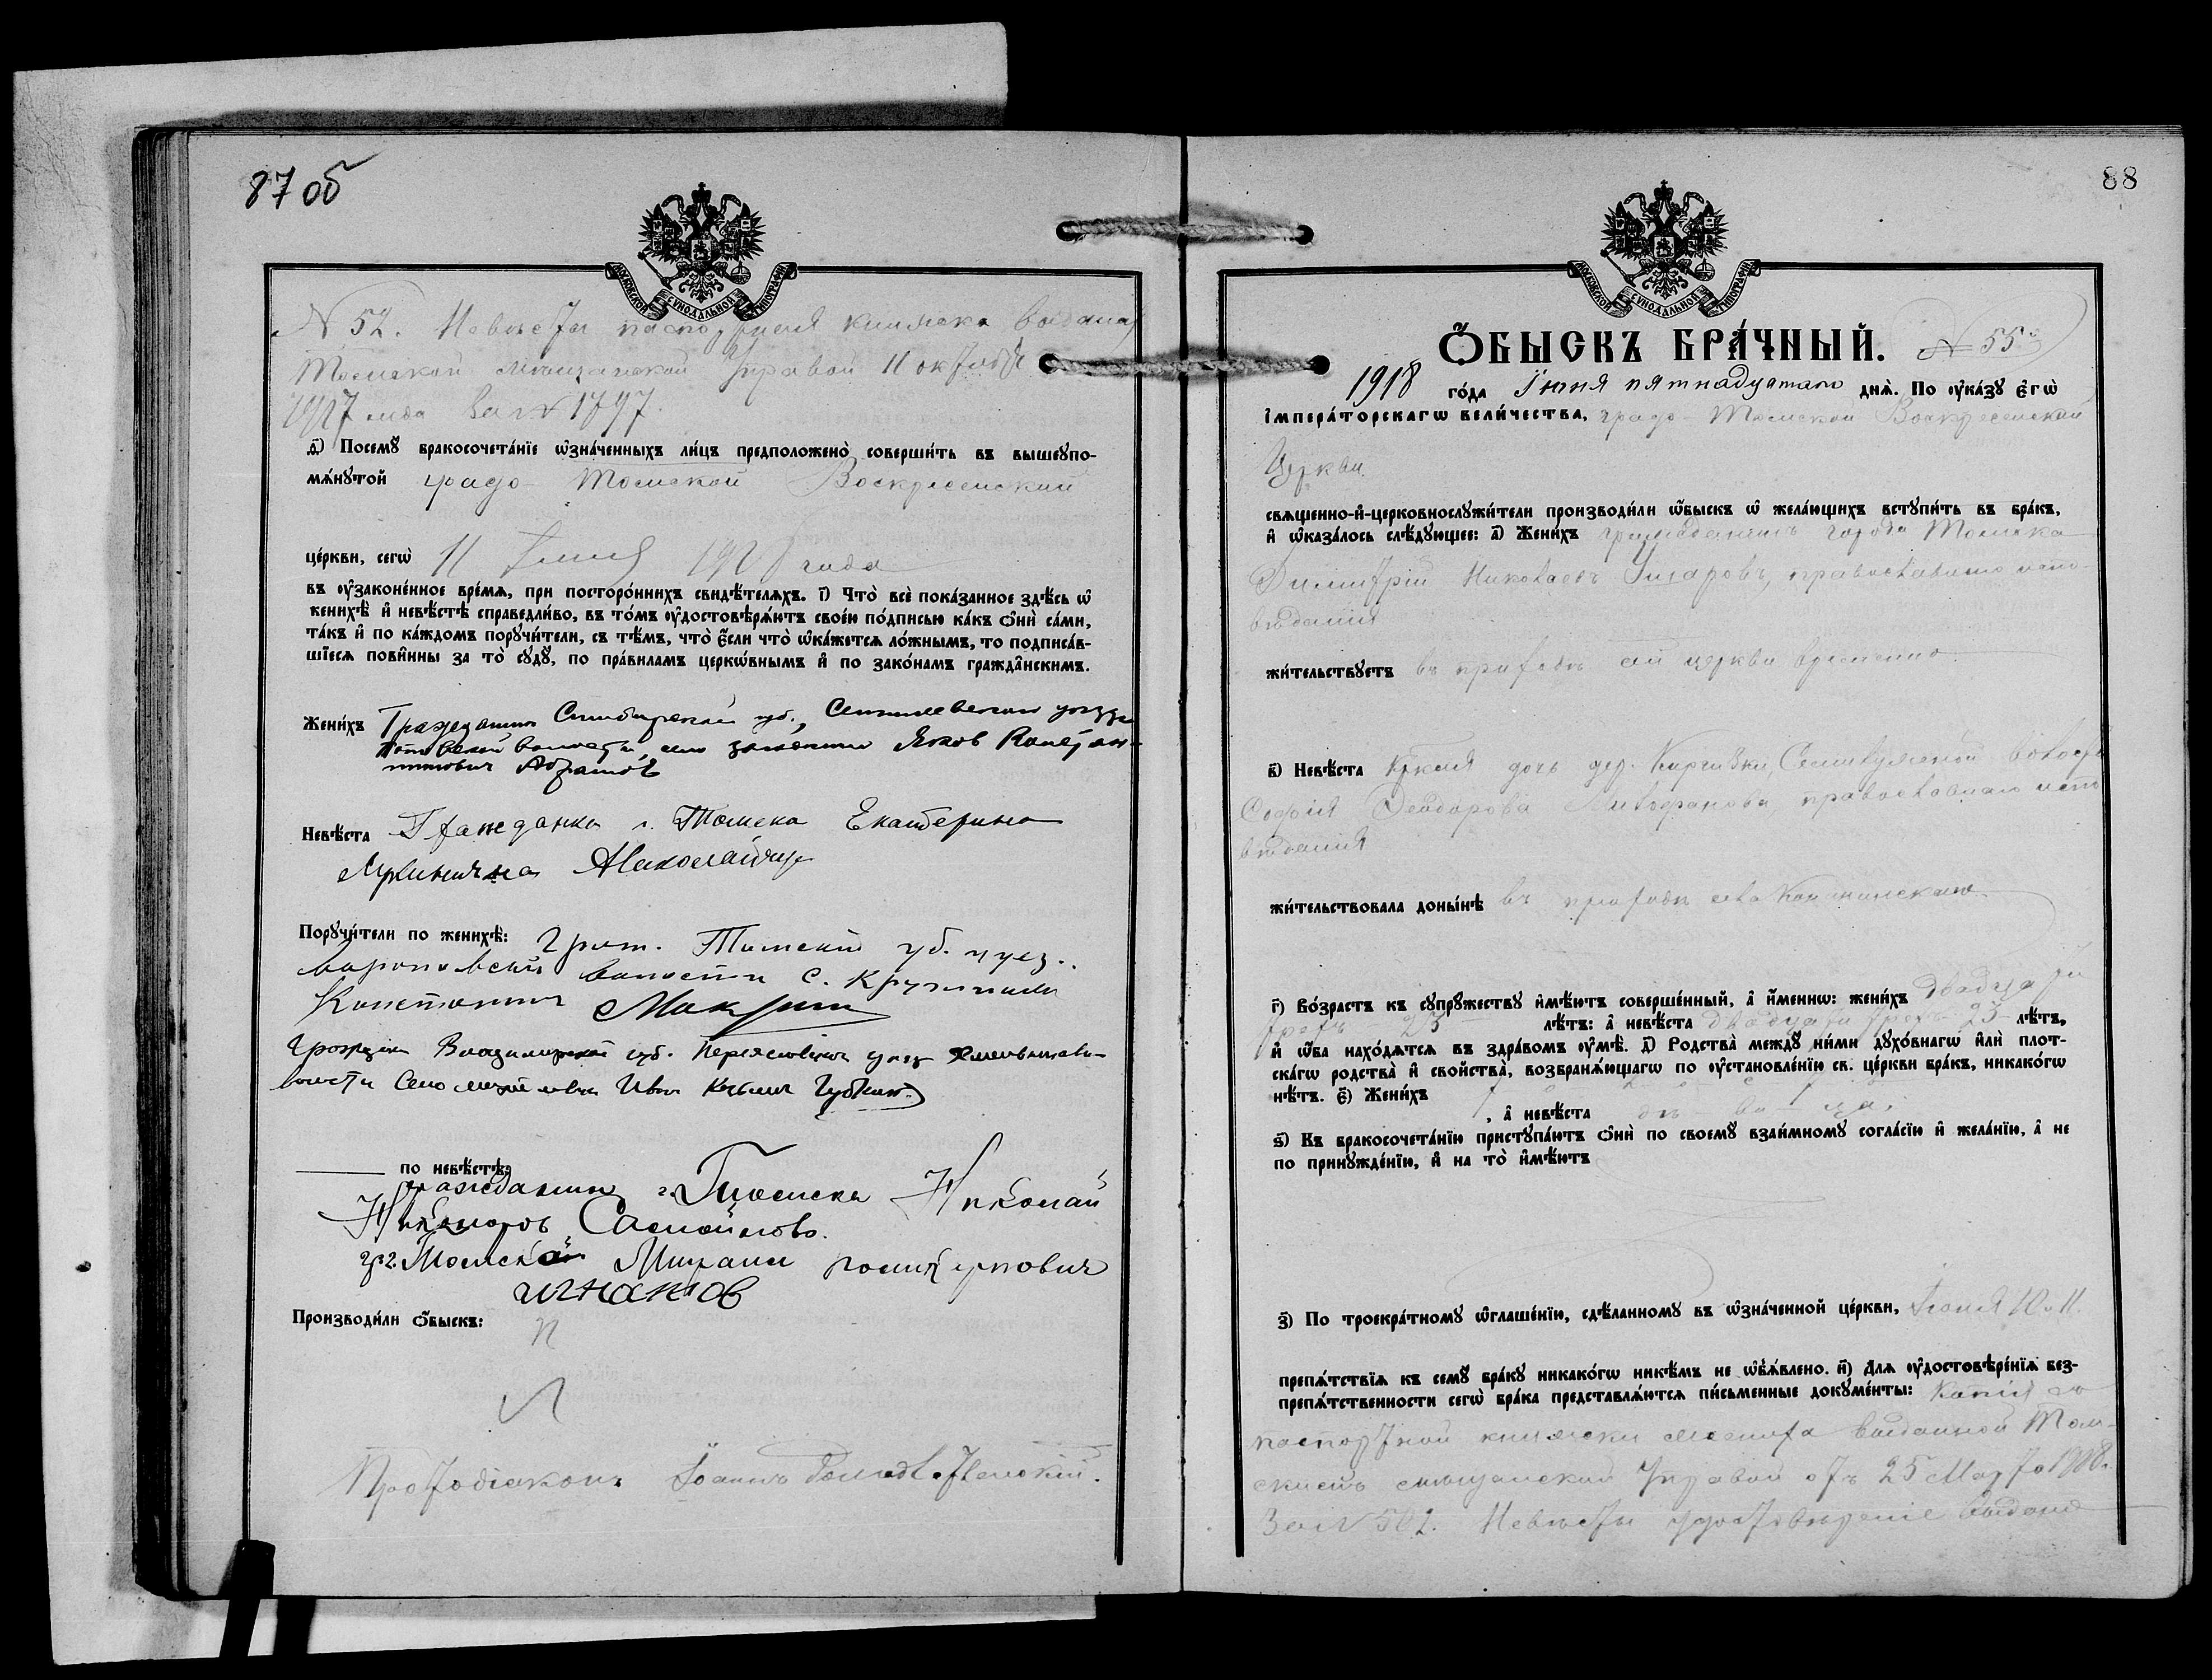 87 об
МОСКОВСКОЙ СУНОДАЛЬНОЙ ТИПОГРАФІИ
№ 52. Невѣсты паспортная книжка выдана
Томской мѣщанской Управой 11 октября
1917 года за № 1797.
ѳ҃) Посемꙋ̀ бракосочета́нїе ѡ҆зна́ченныхъ ли́цъ предположено̀ соверши́ть въ вышеꙋпо-
мѧ́нꙋтой градо-Томской Воскресенской
це́ркви, сегѡ̀ 11 Іюня 1918 года
въ ᲂу҆законе́нное вре́мѧ, при посторо́ннихъ свидѣ́телѧхъ. і҃) Что̀ всѐ пока́занное здѣ́сь ѡ҆
женихѣ̀ и҆ невѣ́стѣ справедли́во, въ то́мъ ᲂу҆достовѣрѧ́итъ свое́ю по́дписью ка́къ ѻ҆нѝ са́ми,
та́къ и҆ по ка́ждомъ порꙋчи́тели, съ тѣ́мъ, что̀ є҆́сли что̀ ѡ҆ка́жется ло́жнымъ, то подписа́в-
шїеся пови́нны за то̀ сꙋдꙋ̀, по пра́виламъ церкѡ́внымъ и҆ по зако́намъ гражда̂нскимъ.
Жени́хъ Гражданин Симбирской губ., Сенгилевскаго уезда
волости, село Яков Констан-
тинович Абрамов
Невѣ́ста Гражданка г. Томска Екатерина
Порꙋчи́тели по женихѣ̀: Томской губ. и уез.
волости с.
Константин
Гражданин Владимирской губ. Переславскаго уезда
волости Село Иван Губкин
по невѣ́стѣ:
гражданин г. Томска Николай
Никаноров Самойлов.
гр. г. Томска Михаил
игнатов
Производи́ли ѻ҆́быскъ:
Протодіаконъ Іоаннъ
88
МОСКОВСКОЙ СУНОДАЛЬНОЙ ТИПОГРАФІИ
Ѻ҆́БЫСКЪ БРА́ЧНЫЙ. № 55
1918 го́да Іюня пятнадцатаго днѧ̀. По ᲂу҆ка́зꙋ є҆гѡ̀
і҆мпера́торскагѡ вели́чества, градо-Томской Воскресенской
Церкви
свѧщенно-и҆-церковнослꙋжи́тели производи́ли ѡ҆́быскъ ѡ҆ жела́ющихъ встꙋпи́ть въ бра́къ,
и҆ ѡ҆каза́лось слѣ́дꙋющее: а҃) Жени́хъ гражданинъ города Томска
Димитрій Николаевъ православнаго испо-
вѣданія
жи́тельствꙋетъ въ приходѣ сей церкви временно.
в҃) Невѣ́ста дочь дер. волости
Софія Ѳеодорова православнаго испо
вѣданія
жи́тельствовала доны́нѣ въ приходѣ села
г҃) Во́зрастъ къ сꙋпрꙋжествꙋ и҆мѣ́ютъ соверше́нный, а҆ и҆́меннѡ: жени́хъ двадцати
трехъ 23 лѣ́тъ: а҆ невѣ́ста двадцати трехъ 23 лѣ́тъ,
и҆ ѻ҆́ба нахо́дѧтся въ здра́вомъ ᲂу҆мѣ̀. д҃) Родства̀ междꙋ̀ ни́ми дꙋхо́внагѡ и҆лѝ плот-
ска́гѡ родства̀ и҆ сво́йства̀, возбранѧ́ющагѡ по ᲂу҆становле́нїю св. це́ркви бра́къ, никако́гѡ
нѣ́тъ. є҃) Жени́хъ
, а҆ невѣ́ста дѣ-ви-ца.
ѕ҃) Къ бракосочета́нїю пристꙋпа́ютъ ѻ҆нѝ по своемꙋ̀ взаи́мномꙋ согла́сїю и҆ жела́нїю, а҆ не
по принꙋжде́нїю, и҆ на то̀ и҆мѣ́ютъ
з҃) По троекра́тномꙋ ѡ҆глаше́нїю, сдѣ́ланномꙋ въ ѡ҆зна́ченной це́ркви, Іюня 10 и 11.
препѧ́тствїѧ къ семꙋ̀ бра́кꙋ никако́гѡ никѣ́мъ не ѡ҆б̾ѧ́влено. и҃) Длѧ ᲂу҆достовѣре́нїѧ без-
препѧ́тственности сегѡ̀ бра́ка представлѧ́ются пи́сьменные докꙋме́нты: Копія съ
паспортной книжки жениха выданной Том-
мѣщанской Управой отъ 25 Марта 1918 г.
За № 502. Невѣсты удостовѣреніе выдано